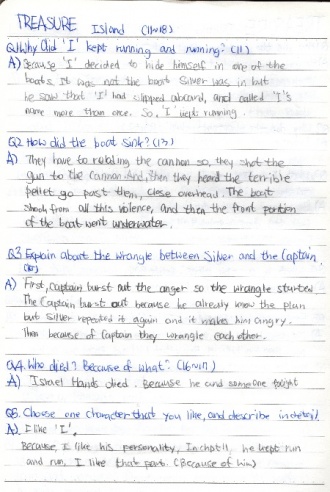 TREASURE Island (11~18)
Q1. Why did 'I' kept running and running? (11)
A) Because 'I' decided to hide himself in one of the
boats. It was not the boat Silver was in but
he saw that 'I' had slipped aboard, and called 'I's
name more than once. So, I kept running.
Q2. How did the boat sink? (13)
A) They have to the cannon so, they shot the
gun to the cannon. And, then they heard the terrible
pellet go past them, close overhead. The boat
shook from all this violence, and then the front portion
of the boat went underwater.
Q3 Explain about the wrangle between Silver and the Captain.
A) First, Captain burst out the anger so the wrangle started.
The Captain burst out because he already know the plan
but Silver repeated it again and it makes him angry.
Then because of Captain they wrangle each other.
Q4. Who died? Because of what? (16~17)
A) Israel Hands died. Because he and someone fought
Q5. Choose one character that you like, and describe
A) I like 'I'.
Because, I like his personality, In chpt11, he kept run
and run. I like that part. (Because of him)